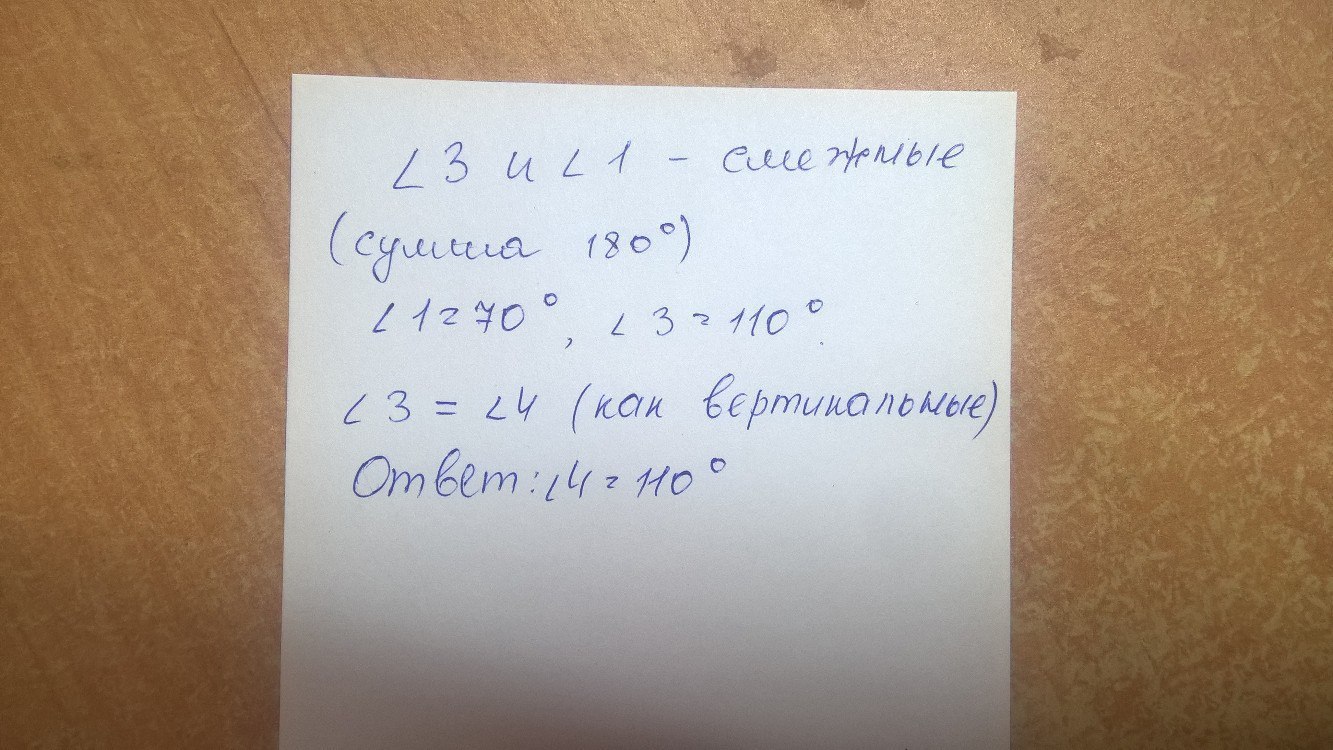 ∠3 и ∠1 - смежные
(сумма 180°)
∠1=70°, ∠3=110°
∠3=∠4 (как вертикальные)
Ответ: ∠4=110°